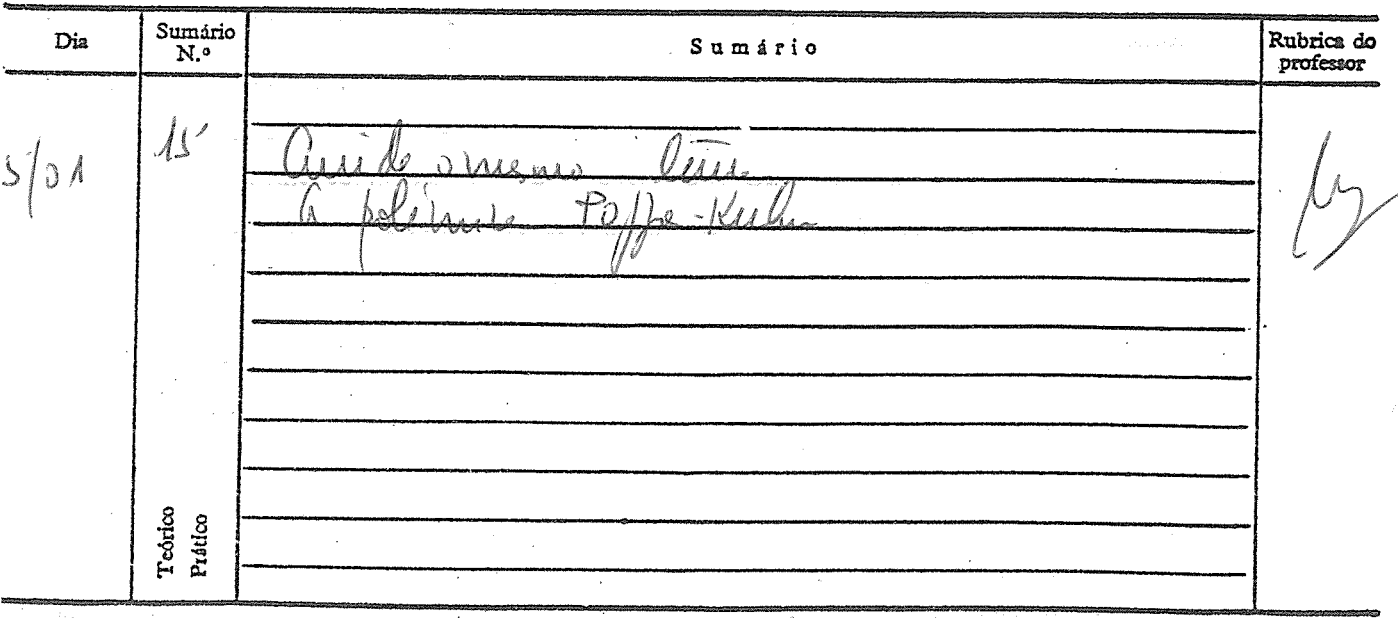 Dia Sumário N.º Sumário Rubrica do professor
5/01 15
Ainda o mesmo tema
A polémica Popper-Kuhn
Teórico
Prático